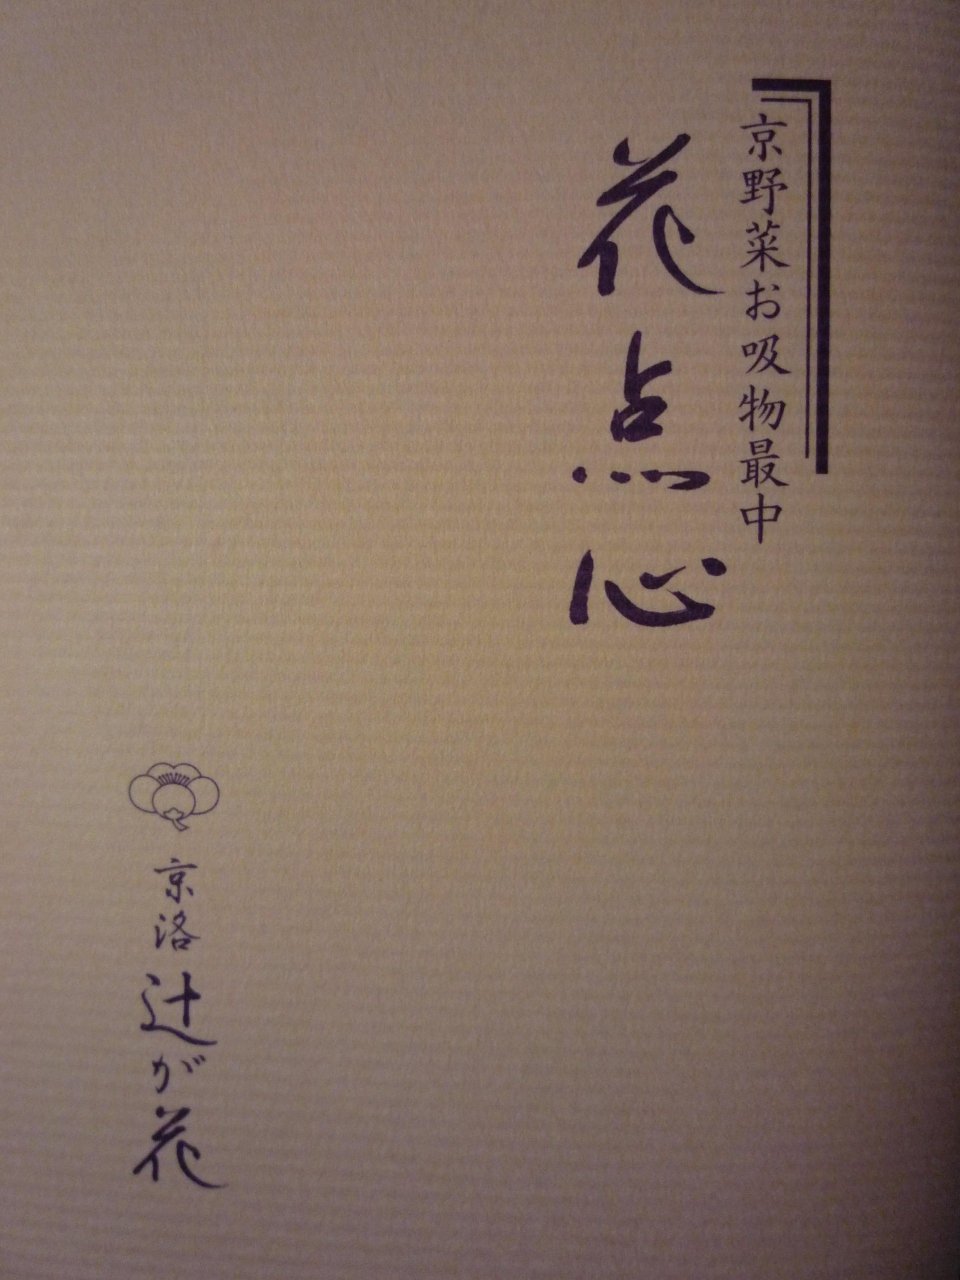 京野菜お吸物最中
花点心
京洛辻が花